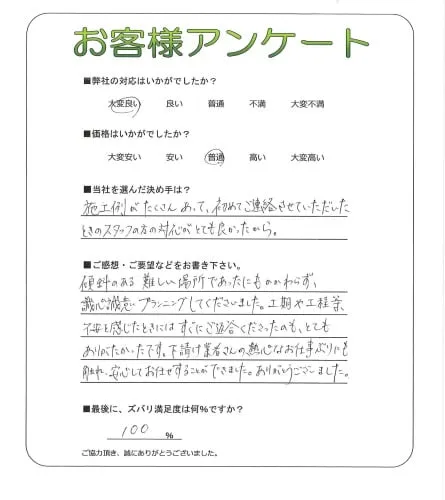 お客様アンケート
■弊社の対応はいかがでしたか?
大変良い 良い 普通 不満 大変不満
■価格はいかがでしたか?
大変安い 安い 普通 高い 大変高い
■当社を選んだ決め手は?
施工例がたくさんあって、初めてご連絡させていただいた
ときのスタッフの方の対応がとても良かったから。
■ご感想・ご要望などをお書き下さい。
傾斜のある難しい場所であったにもかかわらず、
誠心誠意プランニングしてくださいました。工期や工程等、
不安と感じたときにはすぐにご返答くださったのも、とても
ありがたかったです。下請け業者さんの熱心なお仕事ぶりにも
触れ、安心してお任せすることができました。ありがとうございました。
■最後に、ズバリ満足度は何%ですか?
100 %
ご協力頂き、誠にありがとうございました。